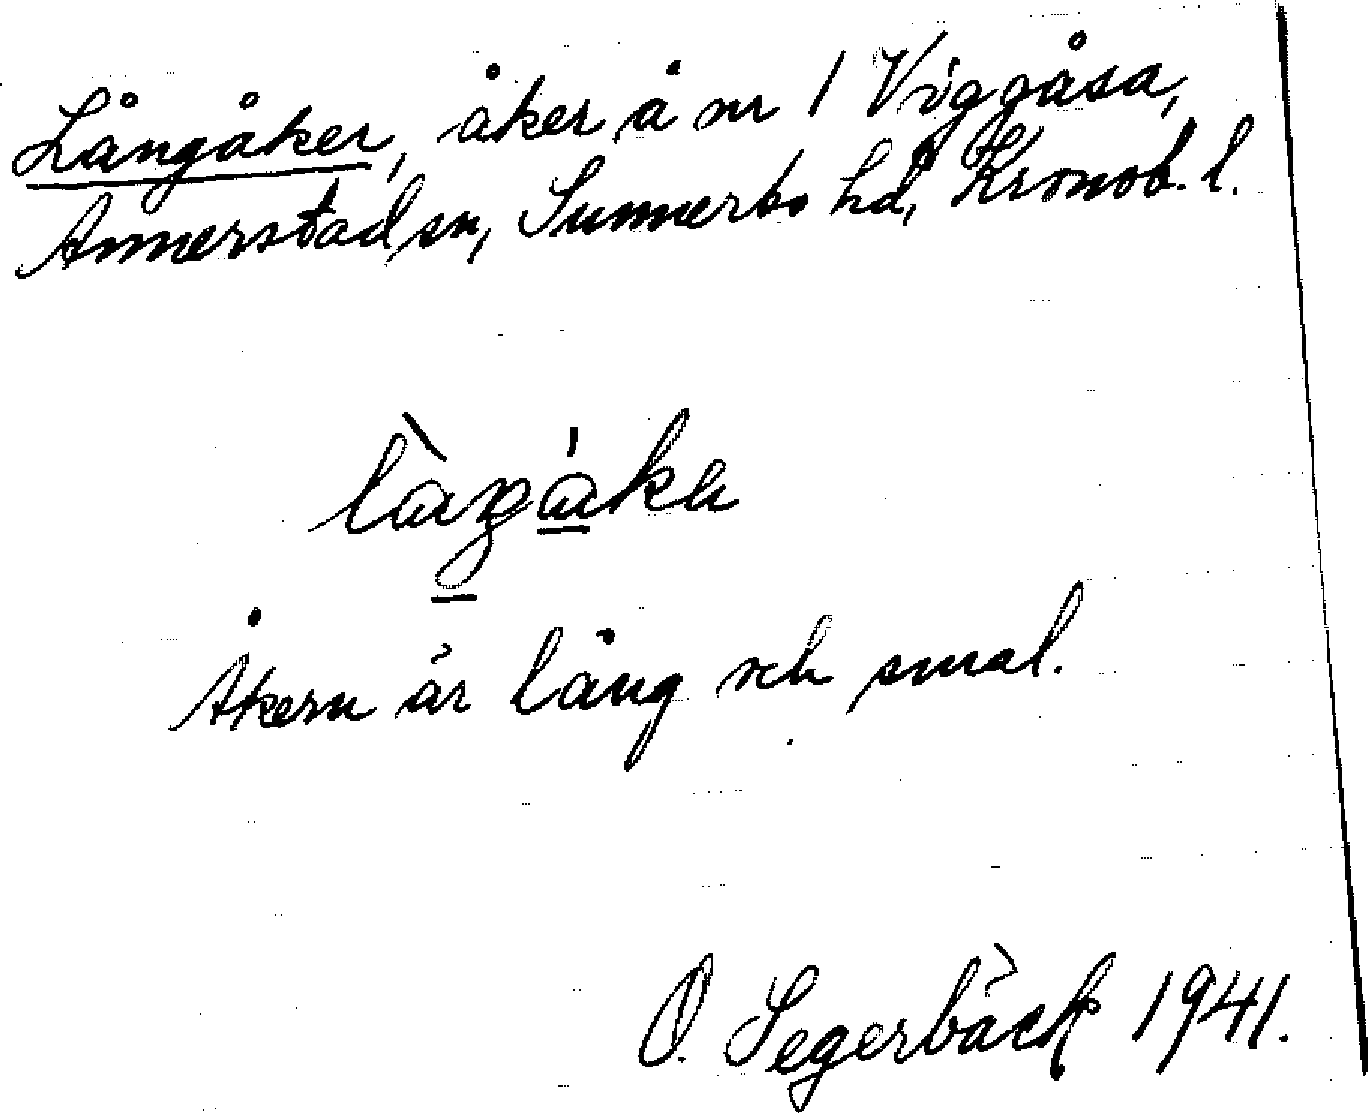 Långåker, åker å nr 1 Viggåsa,
Annerstad sn, Sunnerbo hd, Kronob. l.
Åkern är lång och smal.
O. Segerbäck 1941.